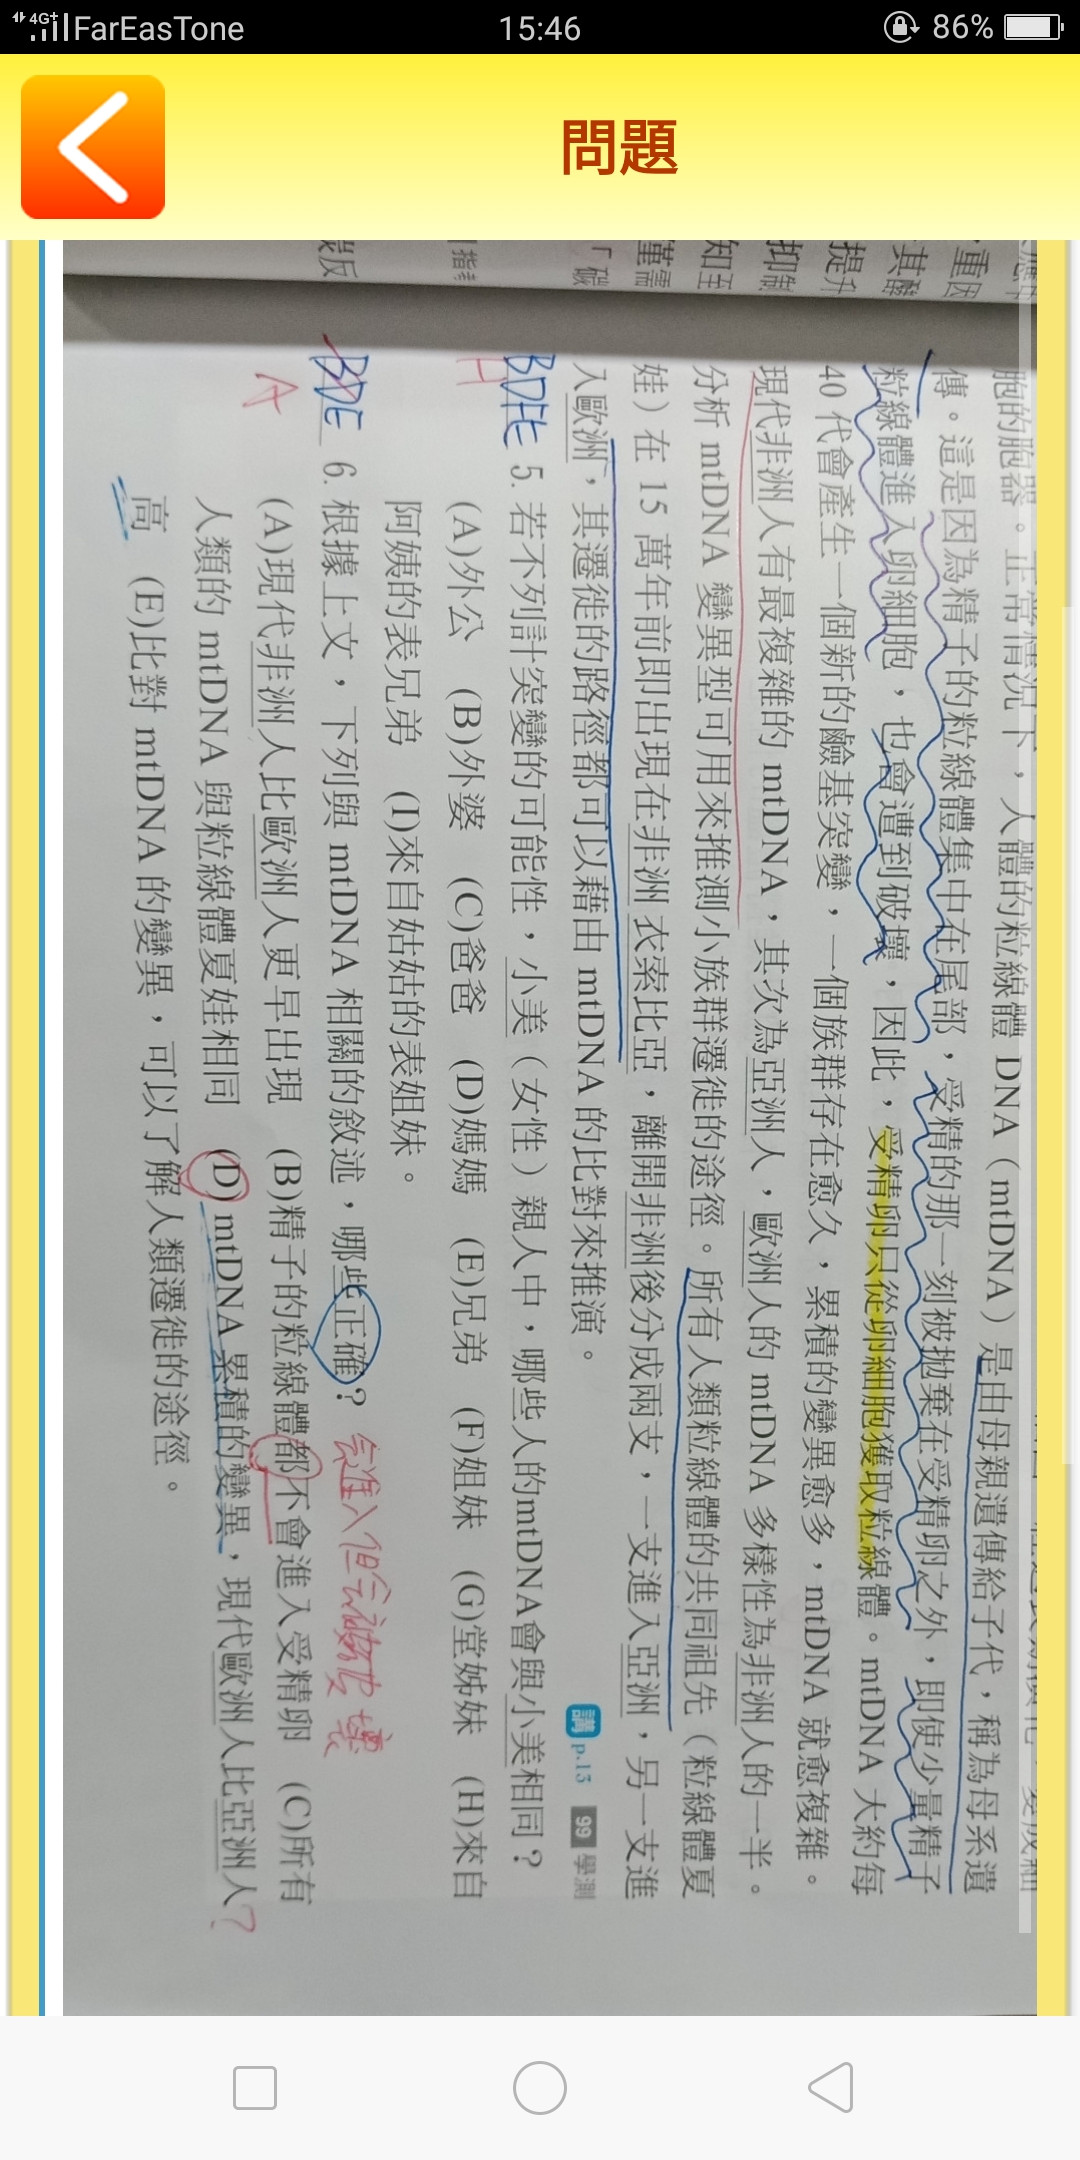 4G+ FarEasTone 15:46 86%
問題
胞的胞器。正常情況下，人體的粒線體 DNA（mtDNA）是由母親遺傳給子代，稱為母系遺
傳。這是因為精子的粒線體集中在尾部，受精的那一刻被拋棄在受精卵之外，即使少量精子
粒線體進入卵細胞，也會遭到破壞，因此，受精卵只從卵細胞獲取粒線體。mtDNA 大約每
40 代會產生一個新的鹼基突變，一個族群存在愈久，累積的變異愈多，mtDNA 就愈複雜。
現代非洲人有最複雜的 mtDNA，其次為亞洲人，歐洲人的 mtDNA 多樣性為非洲人的一半。
分析 mtDNA 變異型可用來推測小族群遷徙的途徑。所有人類粒線體的共同祖先（粒線體夏
娃）在 15 萬年前即出現在非洲衣索比亞，離開非洲後分成兩支，一支進入亞洲，另一支進
入歐洲，其遷徙的路徑都可以藉由 mtDNA 的比對來推演。 講 p.13 99 學測
BDFE 5. 若不列計突變的可能性，小美（女性）親人中，哪些人的mtDNA會與小美相同？
H (A)外公 (B)外婆 (C)爸爸 (D)媽媽 (E)兄弟 (F)姐妹 (G)堂姊妹 (H)來自
阿姨的表兄弟 (I)來自姑姑的表姐妹。
BDE 6. 根據上文，下列與 mtDNA 相關的敘述，哪些正確？ 會進入但會被破壞
A (A)現代非洲人比歐洲人更早出現 (B)精子的粒線體都不會進入受精卵 (C)所有
人類的 mtDNA 與粒線體夏娃相同 (D) mtDNA 累積的變異，現代歐洲人比亞洲人?
高 (E)比對 mtDNA 的變異，可以了解人類遷徙的途徑。
重因
其酸
提升
抑制
知至
僅需
「碳
指考